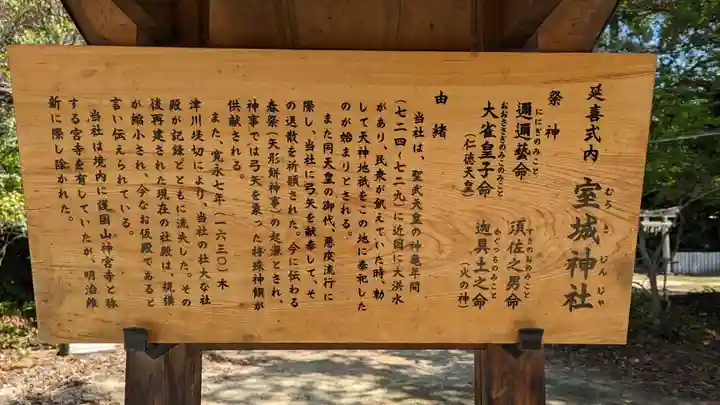 延喜式内 室城神社
むろ き じん じゃ
祭神
ににぎのみこと
邇邇藝命
すさのおのみこと
須佐之男命
おおささぎのみこのみこと
大雀皇子命
(仁徳天皇)
かぐつちのみこと
迦具土之命
(火の神)
由緒
当社は、聖武天皇の神亀年間
(七二四~七二九)に近国に大洪水
があり、民衆が飢えていた時、勅
して天神地祇をこの地に奉祀した
のが始まりとされる。
また同天皇の御代、悪疫流行に
際し、当社に弓矢を献奉して、そ
の退散を祈願された。今に伝わる
春祭(矢形餅神事)の起源とされ、
神事では弓矢を象った特殊神饌が
供献される。
また、寛永七年(一六三〇)木
津川堤切により、当社の壮大な社
殿が記録とともに流失した。その
後再建された現在の社殿は、規模
が縮小され、今なお仮殿であると
言い伝えられている。
当社は境内に護国山神宮寺と称
する宮寺を有していたが、明治維
新に際し除かれた。